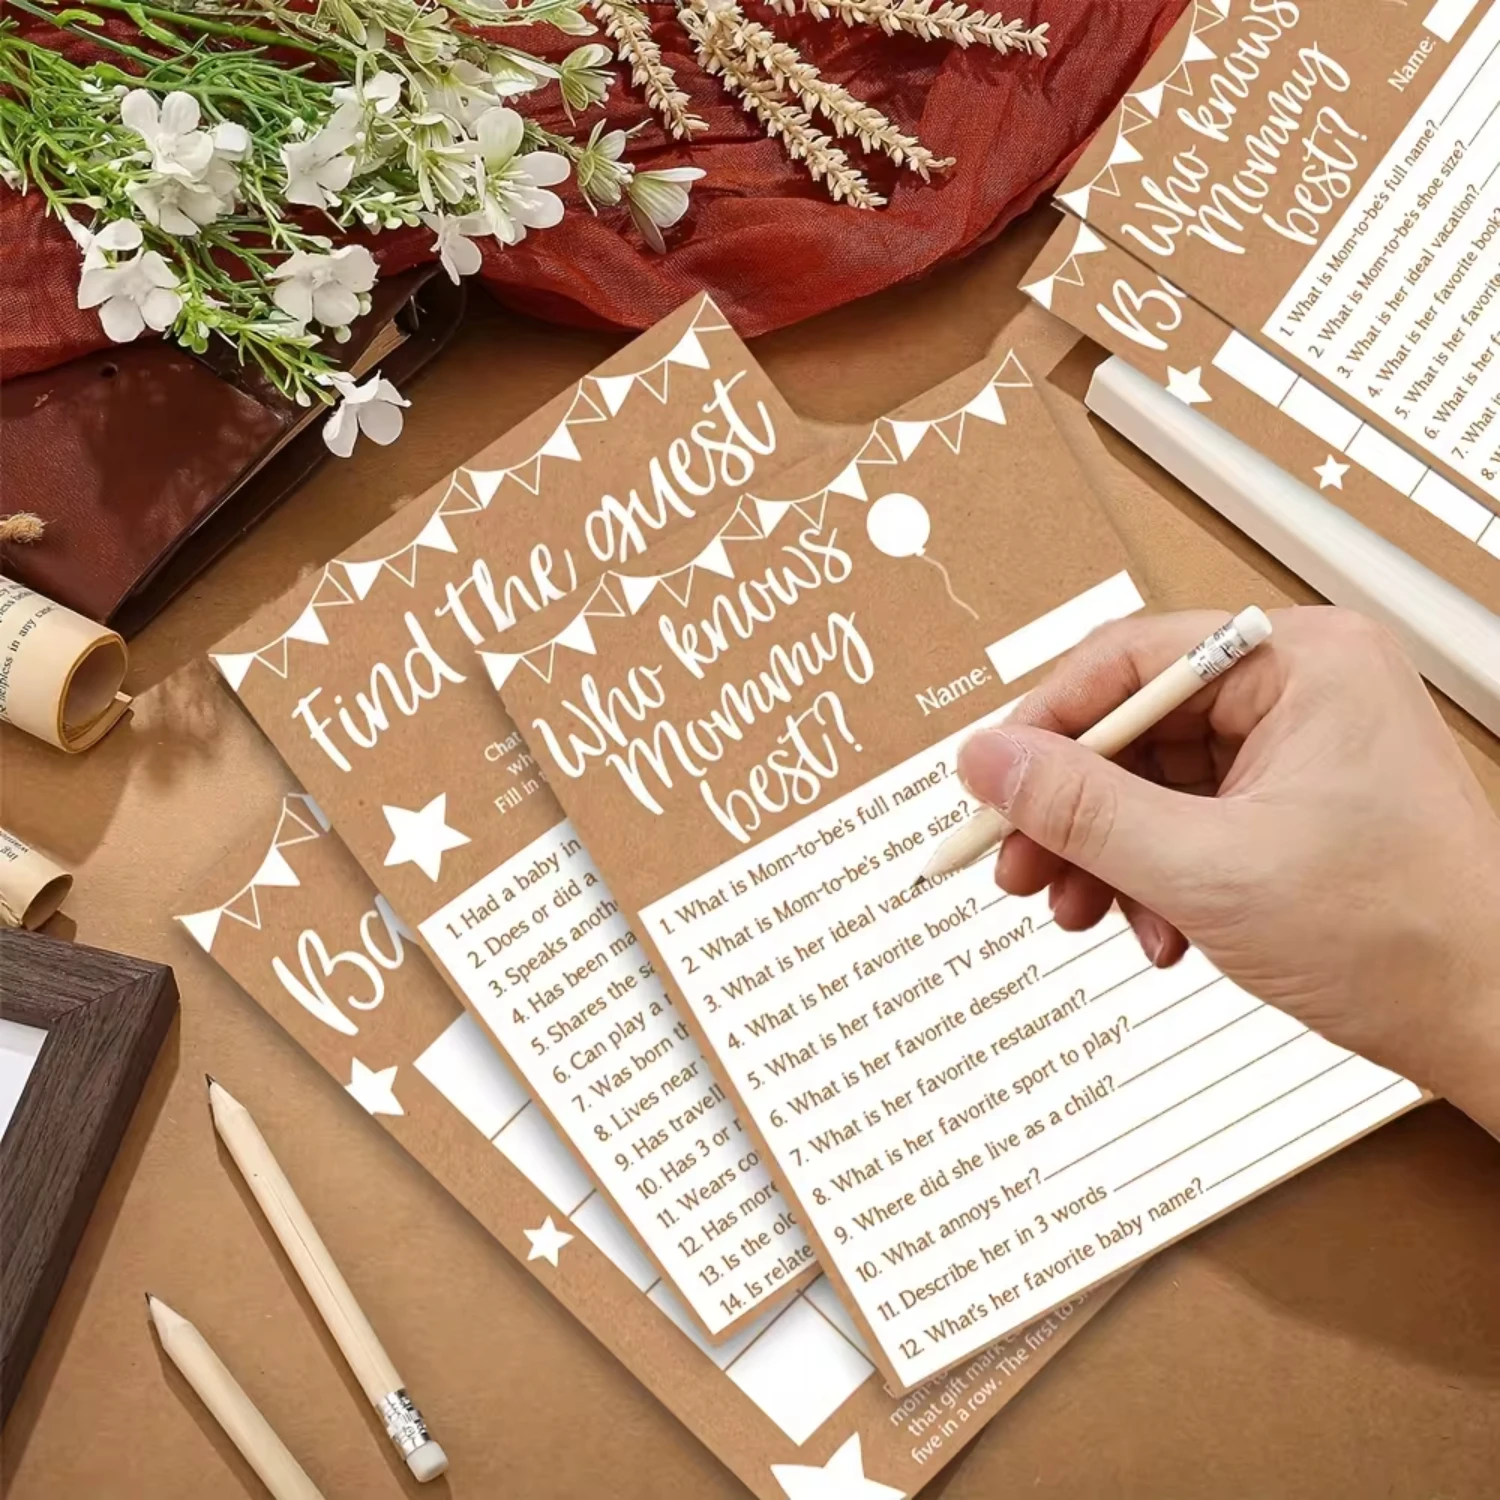 Find the guest
Chat
wh
Fill in
1. Had a baby in
2. Does or did a
3. Speaks anoth
4. Has been ma
5. Shares the sa
6. Can play a
7. Was born th
8. Lives near
9. Has travell
10. Has 3 or
11. Wears co
12. Has more
13. Is the old
14. Is relate
Who knows
Mommy
best?
Name:
1. What is Mom-to-be's full name?
2. What is Mom-to-be's shoe size?
3. What is her ideal vacation
4. What is her favorite book?
5. What is her favorite TV show?
6. What is her favorite dessert?
7. What is her favorite restaurant?
8. What is her favorite sport to play?
9. Where did she live as a child?
10. What annoys her?
11. Describe her in 3 words
12. What's her favorite baby name?
Ba
that gift mark
five in a row. The first to
Who knows
Mommy
best?
Name:
1. What is Mom-to-be's full name?
2. What is Mom-to-be's shoe size?
3. What is her ideal vacation?
4. What is her favorite book?
5. What is her favorite
6. What is her fa
7. What is
8. W
B